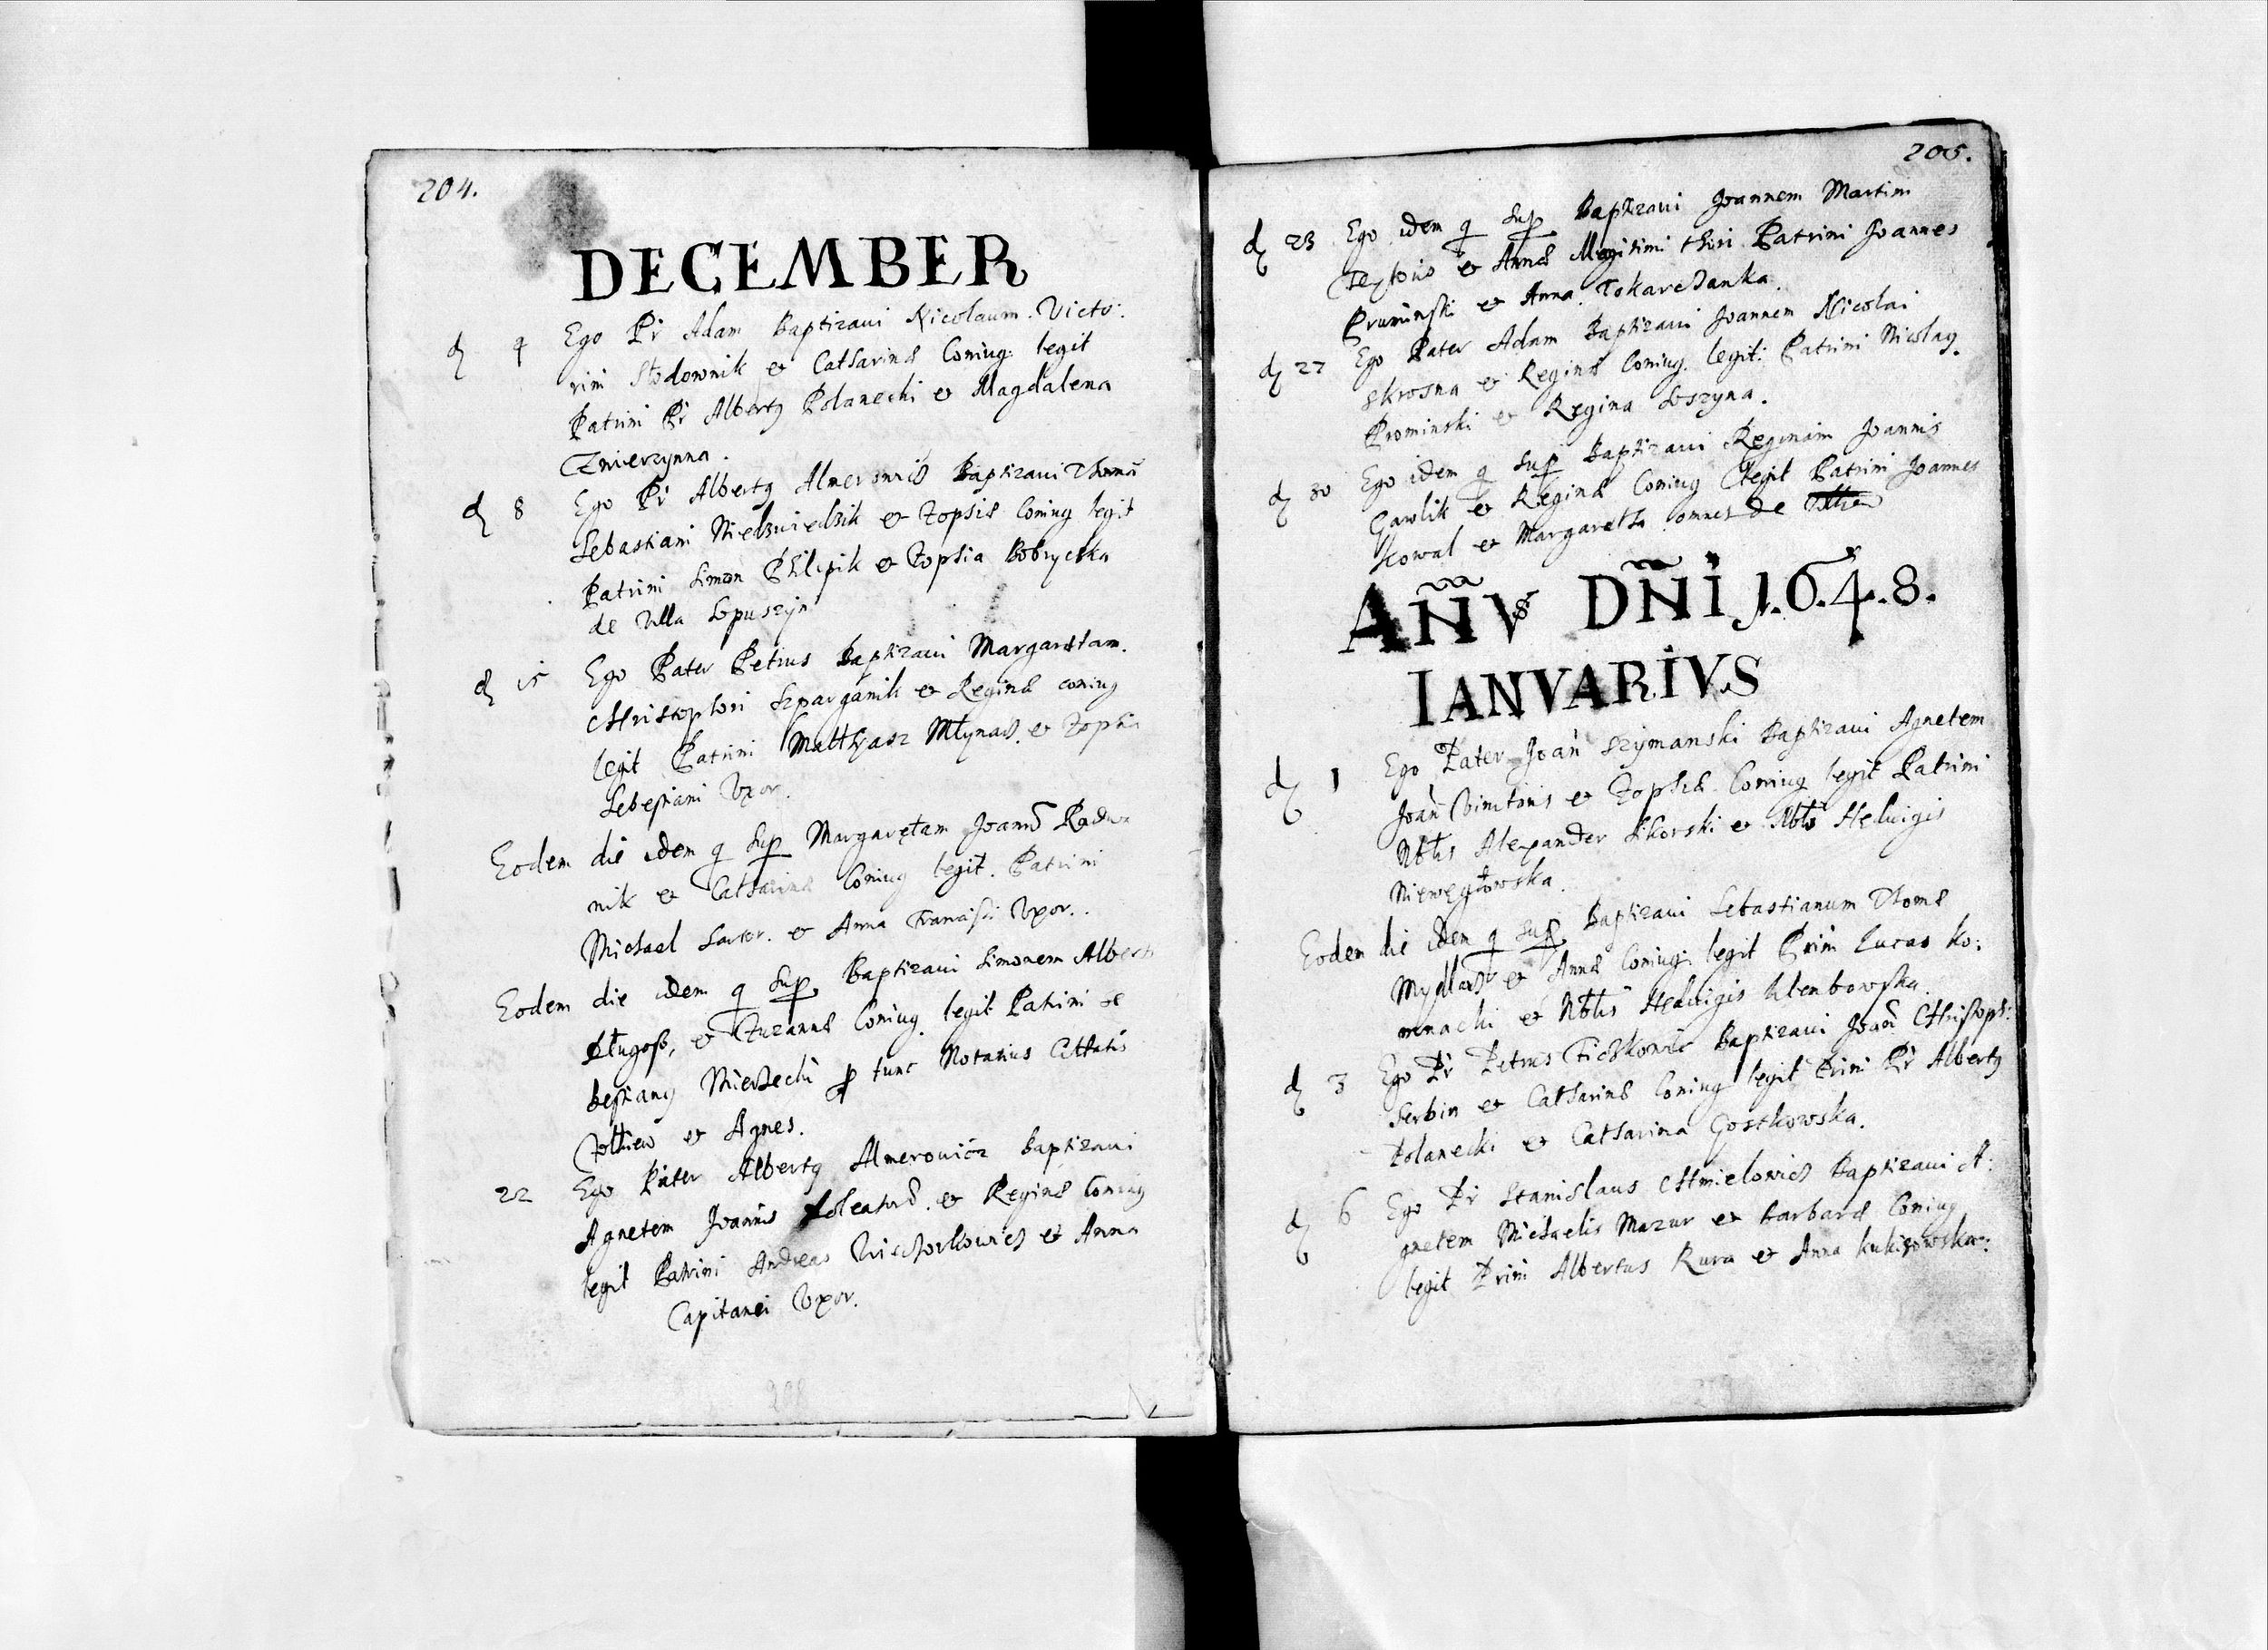 204.
DECEMBER
d 9 Ego Pr Adam Baptizaui Nicolaum Victo:
rini Słodownik et Catharinæ Coniug: legit
Patrini Pr Albertꝯ Polanecki et Magdalena
Zwierzynna.
d 8 Ego Pr Albertꝯ Baptizaui
Sebastiani Niedzwiedzik et Zophiæ Coniug legit
Patrini Simon Philipik et Zophia Bobrycka
de Villa Lopuszyn
d 15 Ego Pater Petrus Baptizaui Margaretam.
Christophori Szparganik et Reginæ coniug
legit Patrini Matthyasz Mlynarz et Zophia
Sebestiani Vxor.
Eodem die idem q sup Margaretam Joannis
nik et Catharinæ Coniug legit. Patrini
Michael Sartor. et Anna Francisci Vxor.
Eodem die idem q sup Baptizaui Simonem Alberti
Długosz, et Zuzannæ Coniug. legit Patrini Se
bestianꝯ p tunc Notarius Ciuitatis
et Agnes.
22 Ego Pater Albertꝯ Almerowicz Baptizaui
Agnetem Joannis et Reginæ Coniug
legit Patrini Andreas et Anna
Capitanei Vxor.
205.
d 23 Ego idem q sup Baptizaui Joannem Martini
Textoris et Annæ legitimi thori Patrini Joannes
Pruminski et Anna
d 27 Ego Pater Adam Baptizaui Joannem Nicolai
Skrosna et Reginæ Coniug. legit: Patrini Nicolaꝯ
Prominski et Regina
d 30 Ego idem q sup Baptizaui Reginam Joannis
Gawlik et Reginæ Coniug legit Patrini Joannes
Kowal et Margaretha omnes de
AÑVS DÑI 1.6.4.8.
IANVARIVS
d 1 Ego Pater Joan Szymanski Baptizaui Agnetem
Joan et Zophiæ Coniug legit Patrini
Nblis Alexander Sikorski et Nblis Heduigis
Niewęgłowska.
Eodem die idem q sup Baptizaui Sebastianum Thomæ
Mydlarz et Annæ Coniug: legit Prini Lucas Ko:
et Nblis Heduigis
d 3 Ego Pr Petrus Baptizaui Joan Christoph:
Serbin et Catharinæ Coniug legit Prini Pr Albertꝯ
Polanecki et Catharina Gostkowska.
d 6 Ego Pr Stanislaus Chmielowicz Baptizaui A:
gnetem Michaelis Mazur et Barbaræ Coniug
legit Prini Albertus Kura et Anna